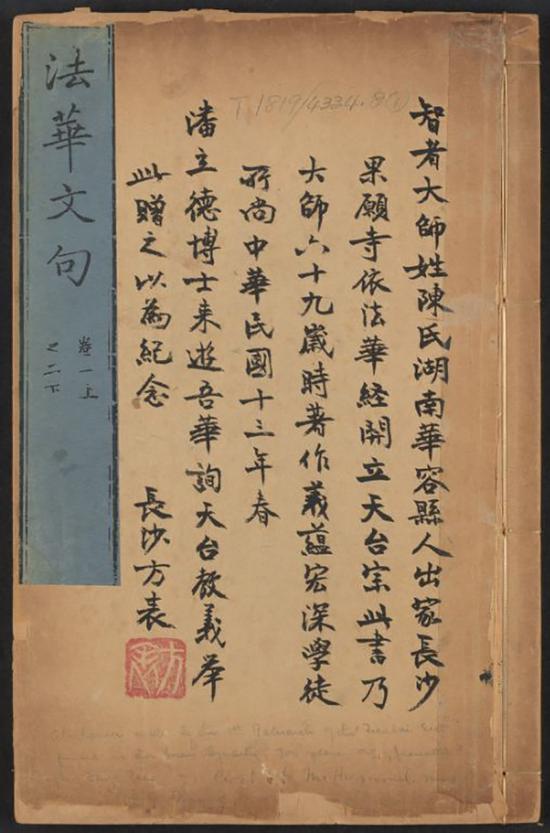 T 1819/4334.8(1)
智者大師姓陳氏湖南華容縣人出家長沙
果願寺依法華經開立天台宗此書乃
大師六十九歲時著作義蘊宏深學徒
所尚中華民國十三年春
潘立德博士来遊吾華詢天台教義举
此贈之以為紀念 長沙方表
方表
法華文句
卷一上
之二下